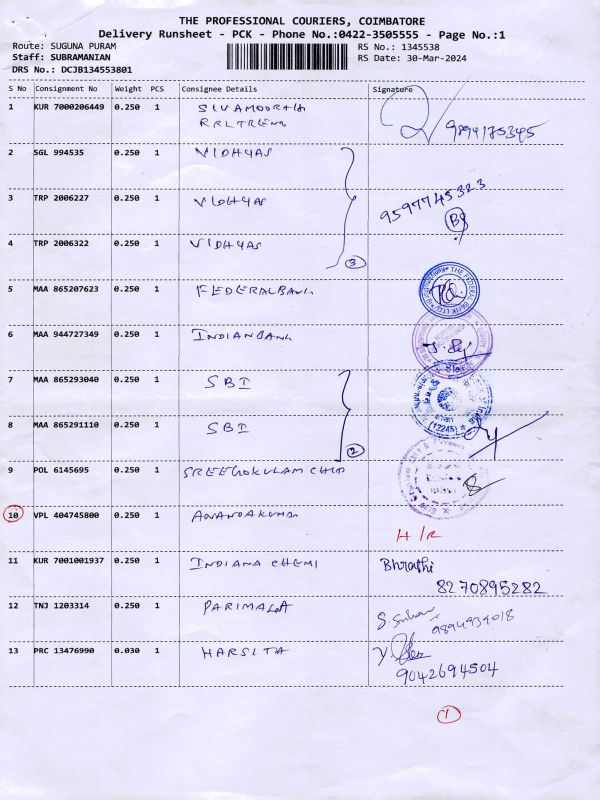 THE PROFESSIONAL COURIERS, COIMBATORE
Delivery Runsheet - PCK - Phone No.:0422-3505555 - Page No.:1
Route: SUGUNA PURAM
RS No.: 1345538
Staff: SUBRAMANIAN
RS Date: 30-Mar-2024
DRS No.: DCJB134553801
S No Consignment No Weight PCS Consignee Details Signature
1 KUR 7000206449 0.250 1 SIVAMOORTH
9894175345
2 SGL 994535 0.250 1 VIDHYAS
3 TRP 2006227 0.250 1 VIDHYAS 9597745323
4 TRP 2006322 0.250 1 VIDHYAS
3
5 MAA 865207623 0.250 1 FEDERALBANK
THE FEDERAL BANK LTD
6 MAA 944727349 0.250 1 INDIANBANK
7 MAA 865293040 0.250 1 SBI
8 MAA 865291110 0.250 1 SBI (12245)
2
9 POL 6145695 0.250 1 SREEGOKULAM CHID
10 VPL 404745800 0.250 1 ANANDAKUMA
H/R
11 KUR 7001001937 0.250 1 INDIANA CHEMI Bhrathi
8270895282
12 TNJ 1203314 0.250 1 PARIMALA
9894939018
13 PRC 13476990 0.030 1 HARSITA
9042694504
1